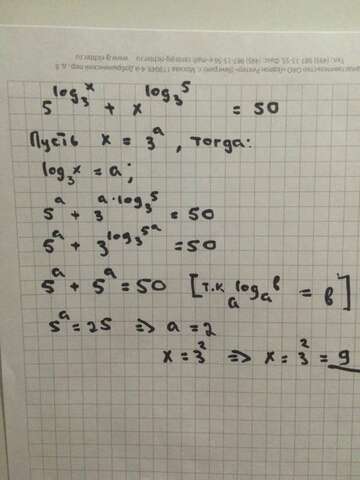 5^log₃x + x^log₃5 = 50
Пусть x = 3^a, тогда:
log₃x = a;
5^a + 3^(a·log₃5) = 50
5^a + 3^(log₃5^a) = 50
5^a + 5^a = 50 [т.к a^(logₐb) = b]
5^a = 25 => a = 2
x = 3² => x = 3² = 9